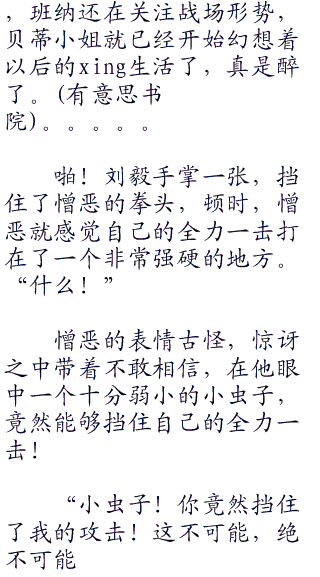 ，班纳还在关注战场形势，
贝蒂小姐就已经开始幻想着
以后的xing生活了，真是醉
了。(有意思书
院)。。。。。
啪！刘毅手掌一张，挡
住了憎恶的拳头，顿时，憎
恶就感觉自己的全力一击打
在了一个非常强硬的地方。
“什么！”
憎恶的表情古怪，惊讶
之中带着不敢相信，在他眼
中一个十分弱小的小虫子，
竟然能够挡住自己的全力一
击！
“小虫子！你竟然挡住
了我的攻击！这不可能，绝
不可能